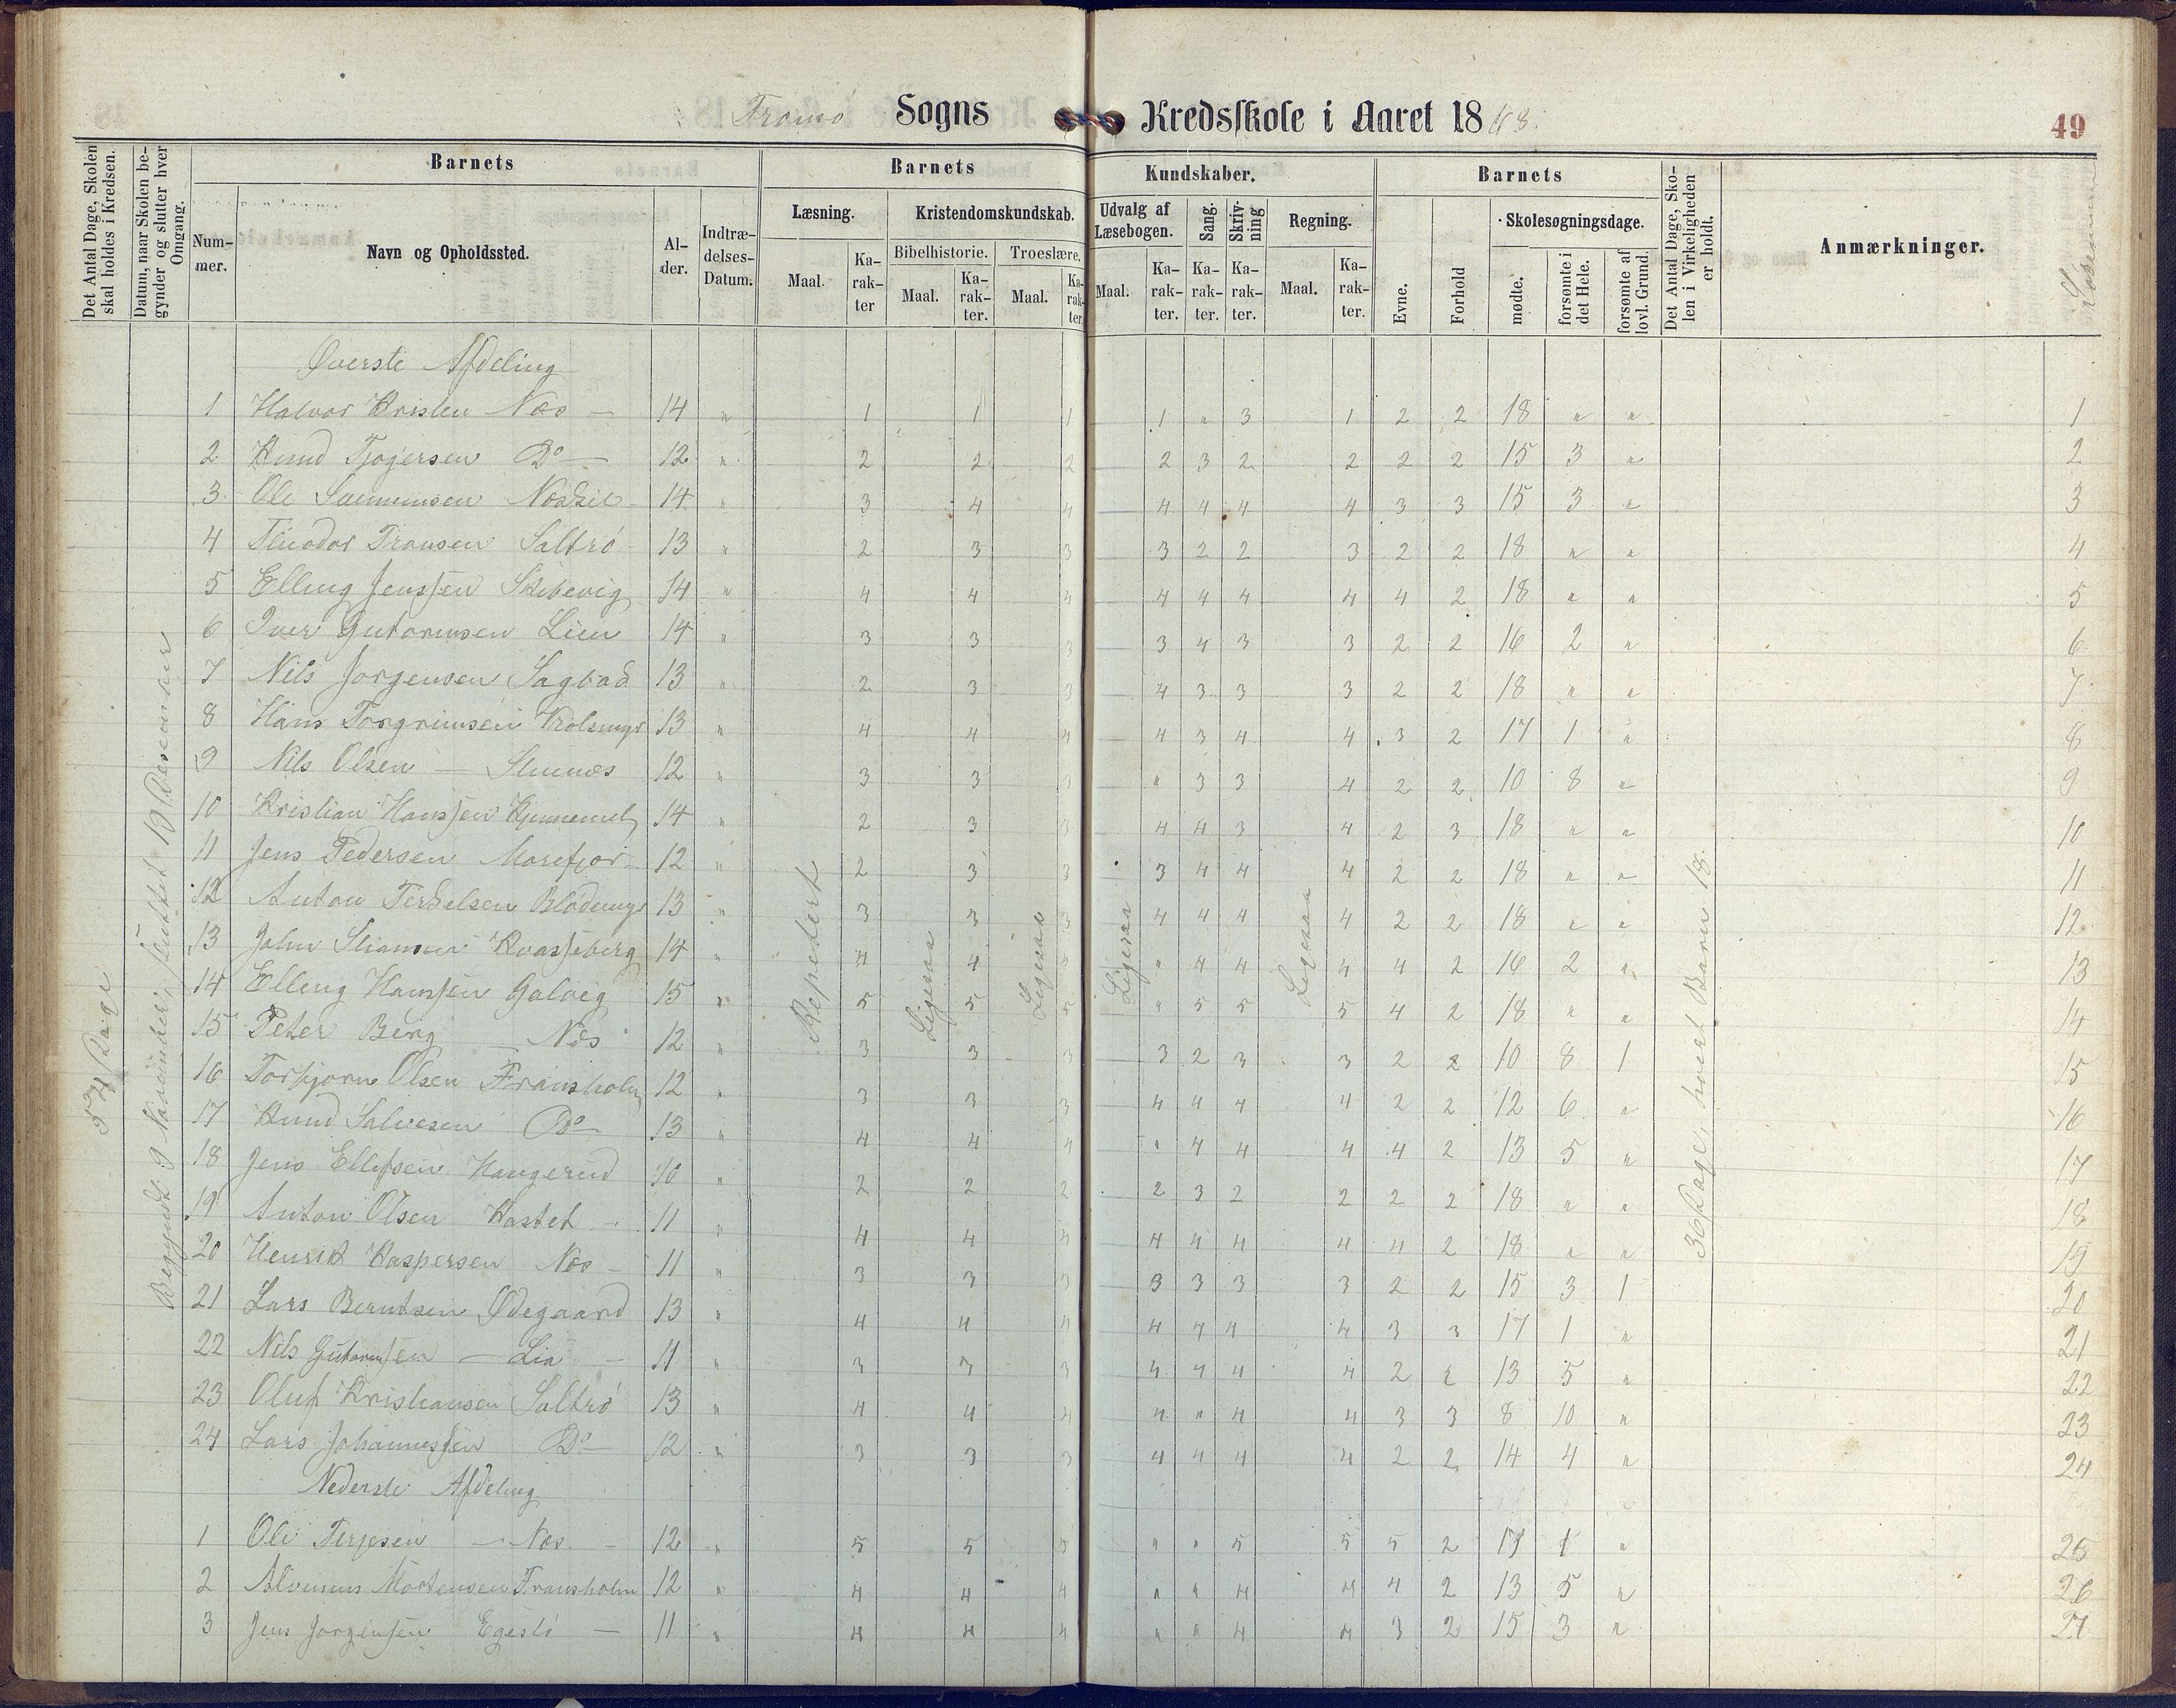 Tromø Sogns Kredsskole i Aaret 1868. 49
Det Antal Dage, Skolen skal holdes i Kredsen.
Datum, naar Skolen begynder og slutter hver Omgang.
Barnets
Nummer.
Navn og Opholdssted.
Alder.
Indtrædelses-Datum.
Barnets Kundskaber.
Læsning.
Maal. Karakter
Kristendomskundskab.
Bibelhistorie.
Maal. Karakter.
Troeslære.
Maal. Karakter.
Udvalg af Læsebogen.
Maal. Karakter.
Sang. Karakter.
Skrivning Karakter.
Regning.
Maal. Karakter.
Barnets
Evne.
Forhold
Skolesøgningsdage.
mødte.
forsømte i det Hele.
forsømte af lovl. Grund.
Det Antal Dage, Skolen i Virkeligheden er holdt.
Anmærkninger.
54 Dage
Begyndt 9 November, sluttet 19 Desember
Repetert
Ligesaa
Ligesaa
Ligesaa
Ligesaa
36 Dage, hvert Barn 18.
Øverste Afdeling
1 Halvor Kristen Næs — 14 " 1 1 1 1 " 3 1 2 2 18 " " 1
2 Knud Tjøgersen Do — 12 " 2 2 2 2 3 2 2 2 2 15 3 " 2
3 Ole Næskil 14 " 3 4 4 4 4 4 4 3 3 15 3 " 3
4 Theodor Tronsen Saltrø 13 " 2 3 3 3 2 2 3 2 2 18 " " 4
5 Elling Jenssen Skibevig 14 " 4 4 4 4 4 4 4 4 2 18 " " 5
6 Iver Gutormsen Lien 14 " 3 3 3 3 4 3 3 2 2 16 2 " 6
7 Nils Jørgensen 13 " 2 3 3 4 3 3 3 2 2 18 " " 7
8 Hans Torgrimsen 13 " 4 4 4 4 3 4 4 3 2 17 1 " 8
9 Nils Olsen — 12 " 3 3 3 " 3 3 4 2 2 10 8 " 9
10 Kristian Hanssen 14 " 2 3 3 4 4 3 4 2 3 18 " " 10
11 Jens Pedersen Morefjær 12 " 2 3 3 3 4 4 4 2 2 18 " " 11
12 Anton Terkelsen Blødemyr 13 " 3 3 3 4 4 4 4 2 2 18 " " 12
13 John Stiansen Kvasseberg 14 " 4 4 4 " 4 4 4 4 2 16 2 " 13
14 Elling Hanssen Galvig 15 " 5 5 5 " 5 5 5 4 2 18 " " 14
15 Peter Berg — Næs 12 " 3 3 3 3 2 3 3 2 2 10 8 1 15
16 Torbjørn Olsen Fransholm 12 " 3 3 3 4 4 4 4 2 2 12 6 " 16
17 Knud Salvesen Do — 13 " 4 4 4 " 4 4 4 4 2 13 5 " 17
18 Jens Ellefsen Haugerud 10 " 2 2 2 2 3 2 2 2 2 18 " " 18
19 Anton Olsen Kastet — 11 " 4 4 4 4 4 4 4 4 2 18 " " 19
20 Henrik Kaspersen Næs — 11 " 3 3 3 3 3 3 3 2 2 15 3 1 20
21 Lars Berntsen Ødegaard 13 " 4 4 4 4 4 4 4 3 3 17 1 " 21
22 Nils Gutormsen — Lia — 11 " 3 3 3 4 4 4 4 2 2 13 5 " 22
23 Oluf Kristiansen Saltrø 13 " 4 4 4 4 " 4 4 3 3 8 10 " 23
24 Lars Johannessen Do — 12 " 3 3 3 4 4 4 4 2 2 14 4 " 24
Nederste Afdeling
1 Ole Terjesen — Næs — 12 " 5 5 5 " " 5 5 5 2 17 1 " 25
2 Mortensen Fransholm 12 " 4 4 4 " " 4 4 4 2 13 5 " 26
3 Jens Jørgensen — 11 " 4 4 4 " " 4 4 3 2 15 3 " 27